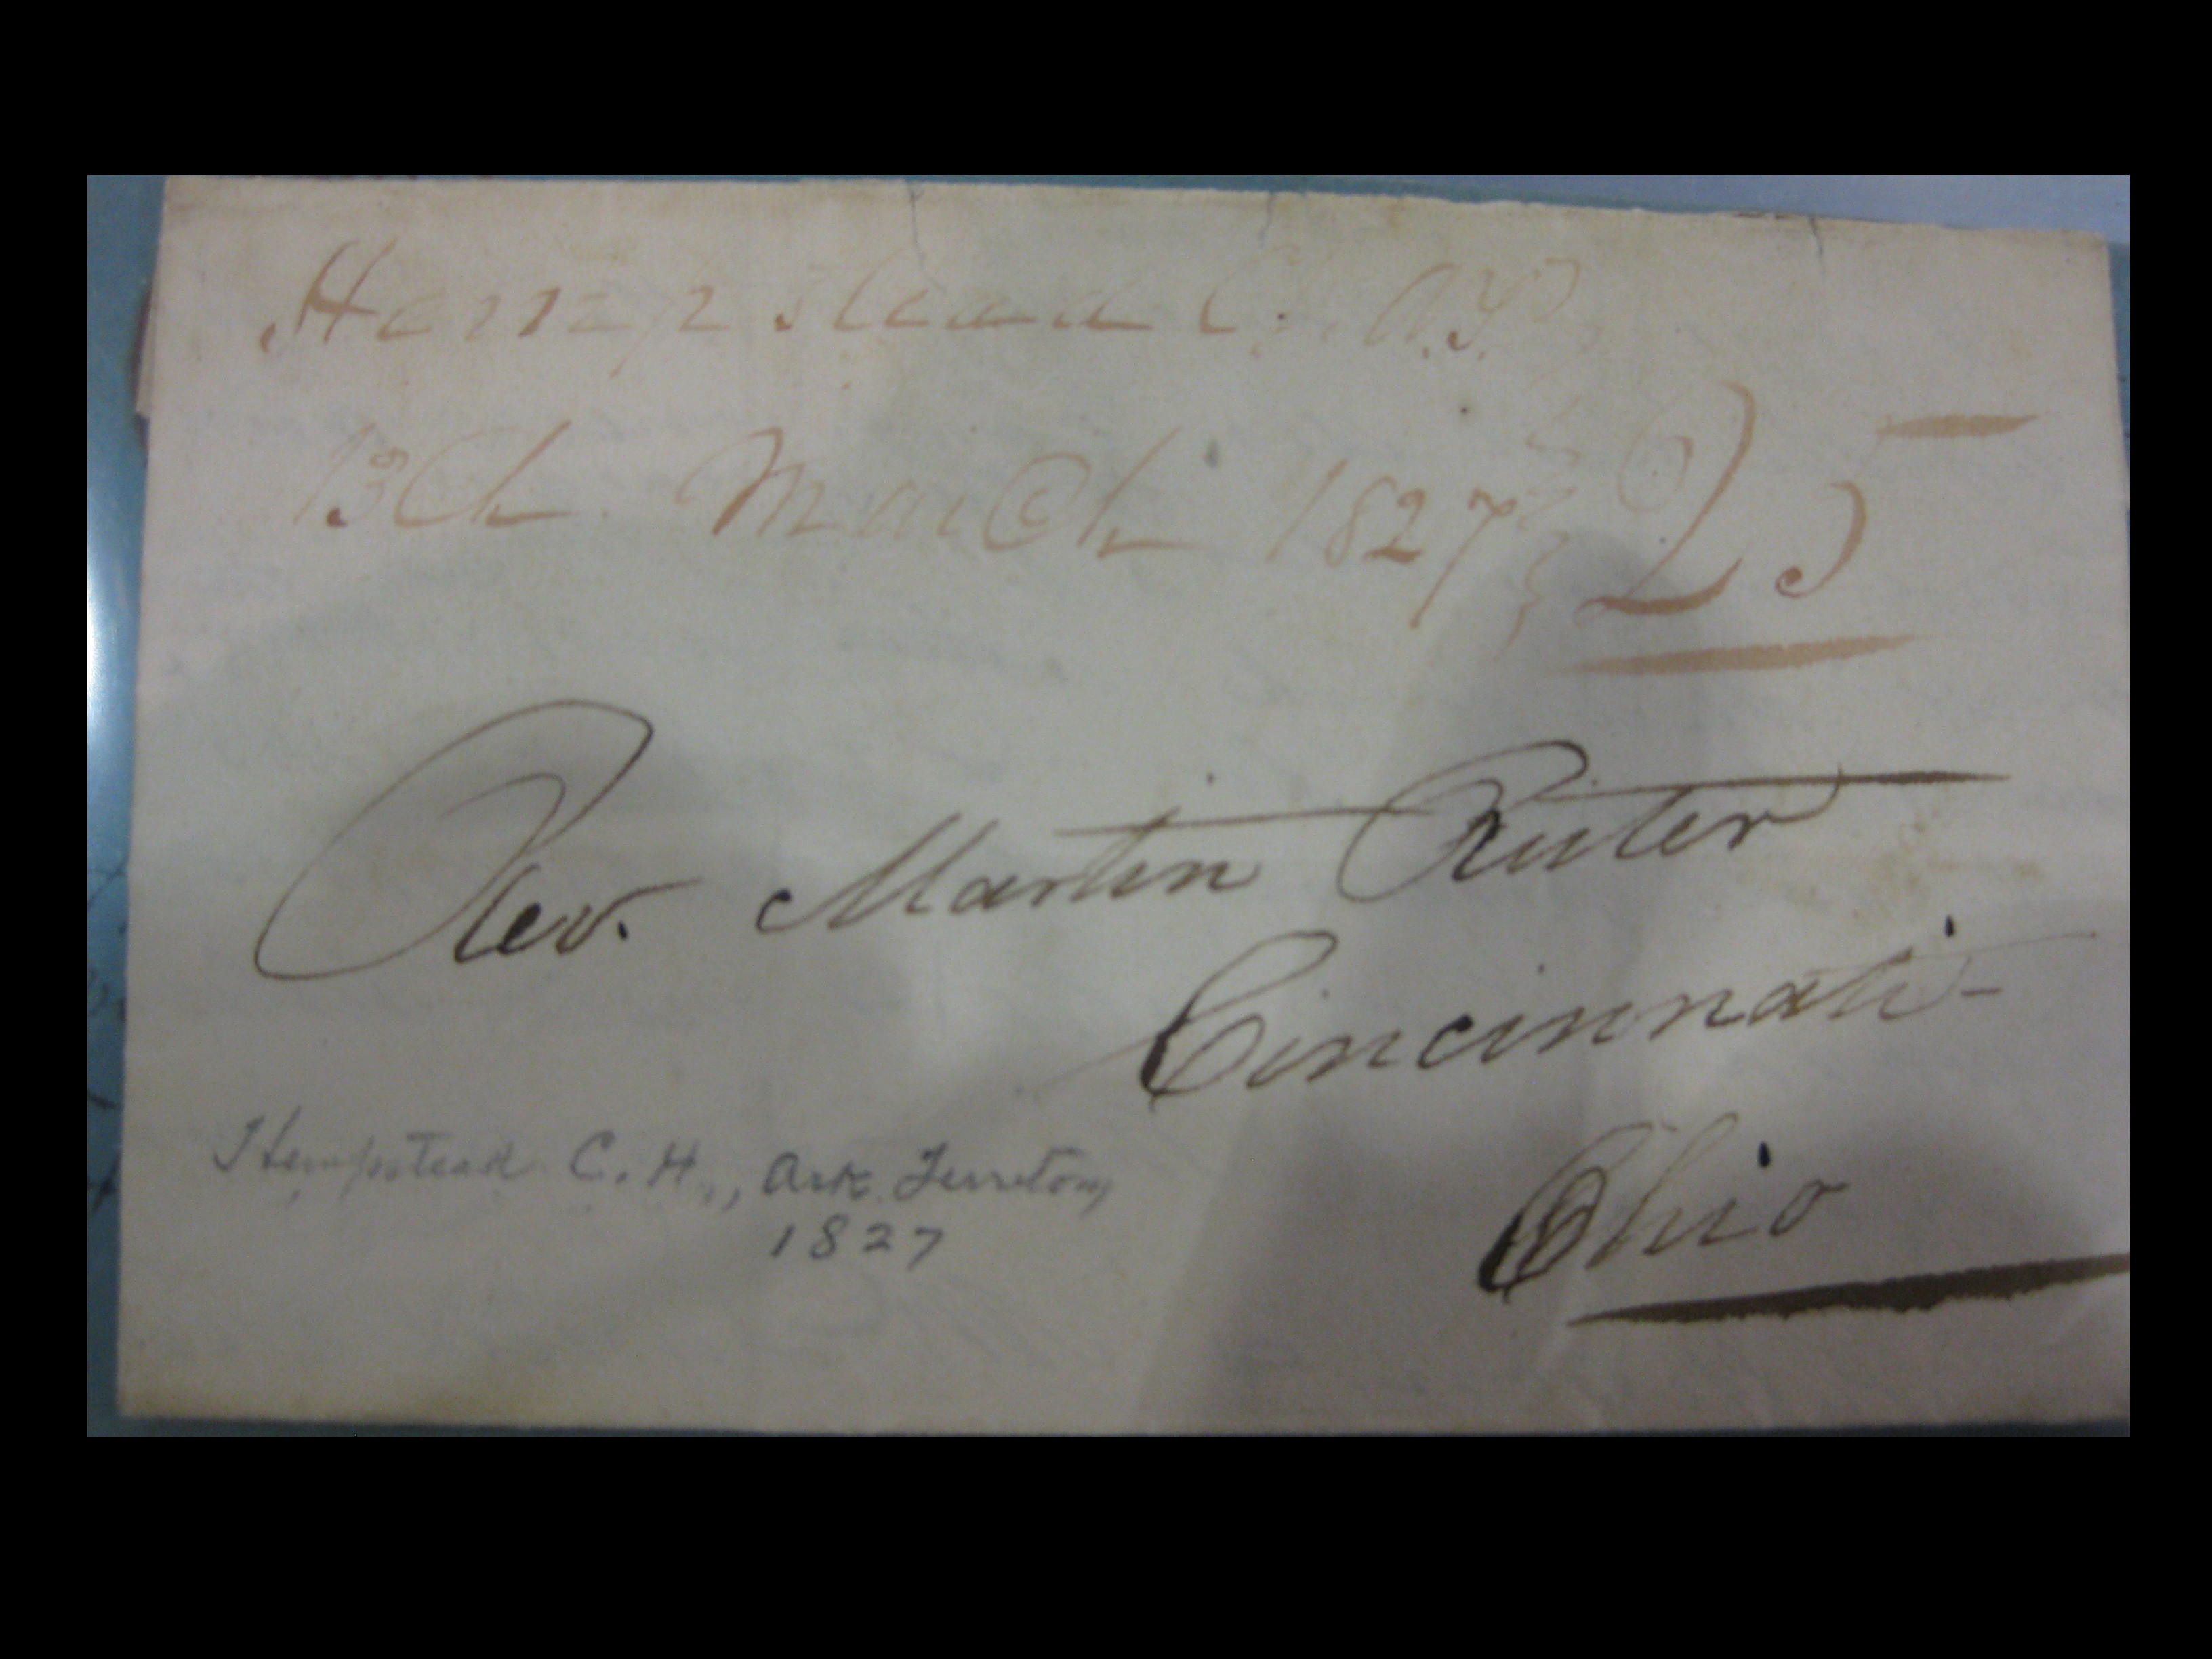 Hempstead C. A.T.
13th March 1827 25
Rev. Martin Ruter
Cincinnati
Ohio
Hempstead C.H., Ark. Territory
1827